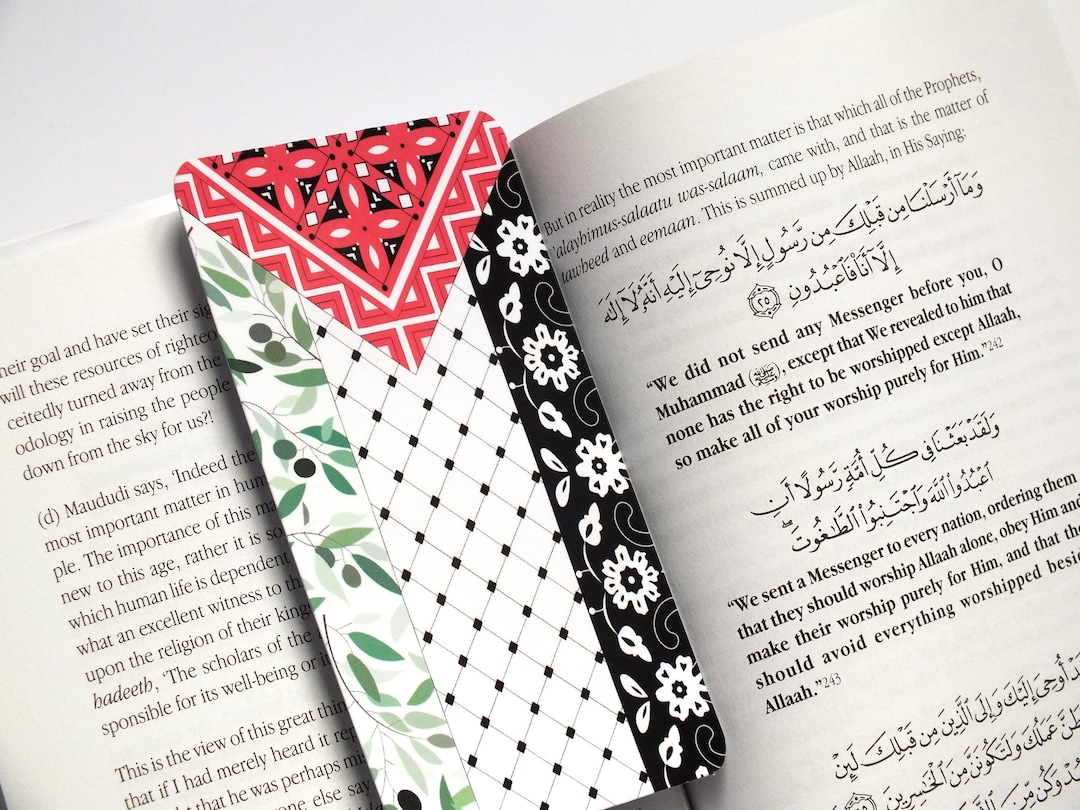 heir goal and have set their sig
will these resources of righteo
ceitedly turned away from the
odology in raising the people
down from the sky for us?!
(d) Maududi says, ‘Indeed the
most important matter in hum
ple. The importance of this ma
new to this age, rather it is so
which human life is dependent
what an excellent witness to th
upon the religion of their king
hadeeth, ‘The scholars of the
sponsible for its well-being or i
This is the view of this great thin
that if I had merely heard it rep
that he was perhaps mi
one else say
But in reality the most important matter is that which all of the Prophets,
'alayhimus-salaatu was-salaam, came with, and that is the matter of
tawheed and eemaan. This is summed up by Allaah, in His Saying:
وَمَآ أَرْسَلْنَا مِن قَبْلِكَ مِن رَّسُولٍ إِلَّا نُوحِىٓ إِلَيْهِ أَنَّهُۥ لَآ إِلَٰهَ
إِلَّآ أَنَا۠ فَٱعْبُدُونِ ٢٥
“We did not send any Messenger before you, O
Muhammad ﷺ, except that We revealed to him that
none has the right to be worshipped except Allaah,
so make all of your worship purely for Him.”242
وَلَقَدْ بَعَثْنَا فِى كُلِّ أُمَّةٍ رَّسُولًا أَنِ
ٱعْبُدُوا۟ ٱللَّهَ وَٱجْتَنِبُوا۟ ٱلطَّٰغُوتَ
“We sent a Messenger to every nation, ordering them
that they should worship Allaah alone, obey Him and
make their worship purely for Him, and that the
should avoid everything worshipped besid
Allaah.”243
قَدْ أُوحِىَ إِلَيْكَ وَإِلَى ٱلَّذِينَ مِن قَبْلِكَ لَئِنْ
طَنَّ عَمَلُكَ وَلَتَكُونَنَّ مِنَ ٱلْخَٰسِرِينَ